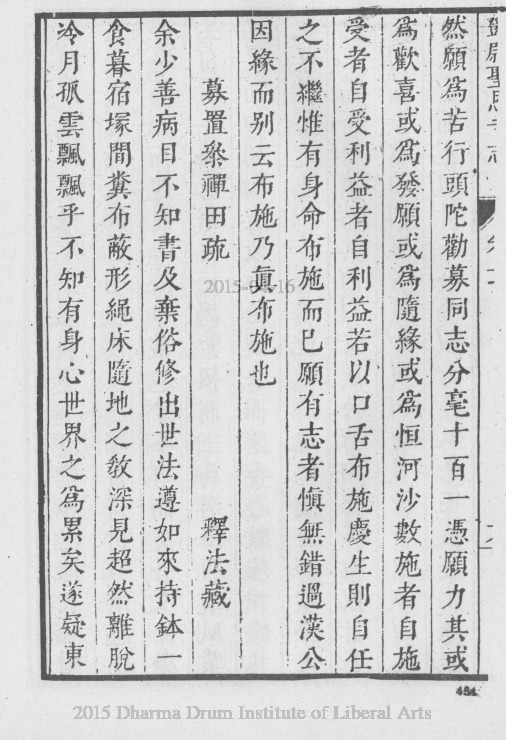 鄧尉聖恩寺志
然願爲苦行頭陀勸募同志分毫十百一憑願力其或
爲歡喜或爲發願或爲隨緣或爲恒河沙數施者自施
受者自受利益者自利益若以口舌布施慶生則自任
之不繼惟有身命布施而巳願有志者愼無錯過漢公
因緣而别云布施乃眞布施也
募置叅禪田疏　釋法藏
余少善病目不知書及棄俗修出世法遵如來持鉢一
食暮宿塚間糞布蔽形繩床隨地之敎深見超然離脫
冷月孤雲飄飄乎不知有身心世界之爲累矣遂疑東
2015-04-16
454
2015 Dharma Drum Institute of Liberal Arts